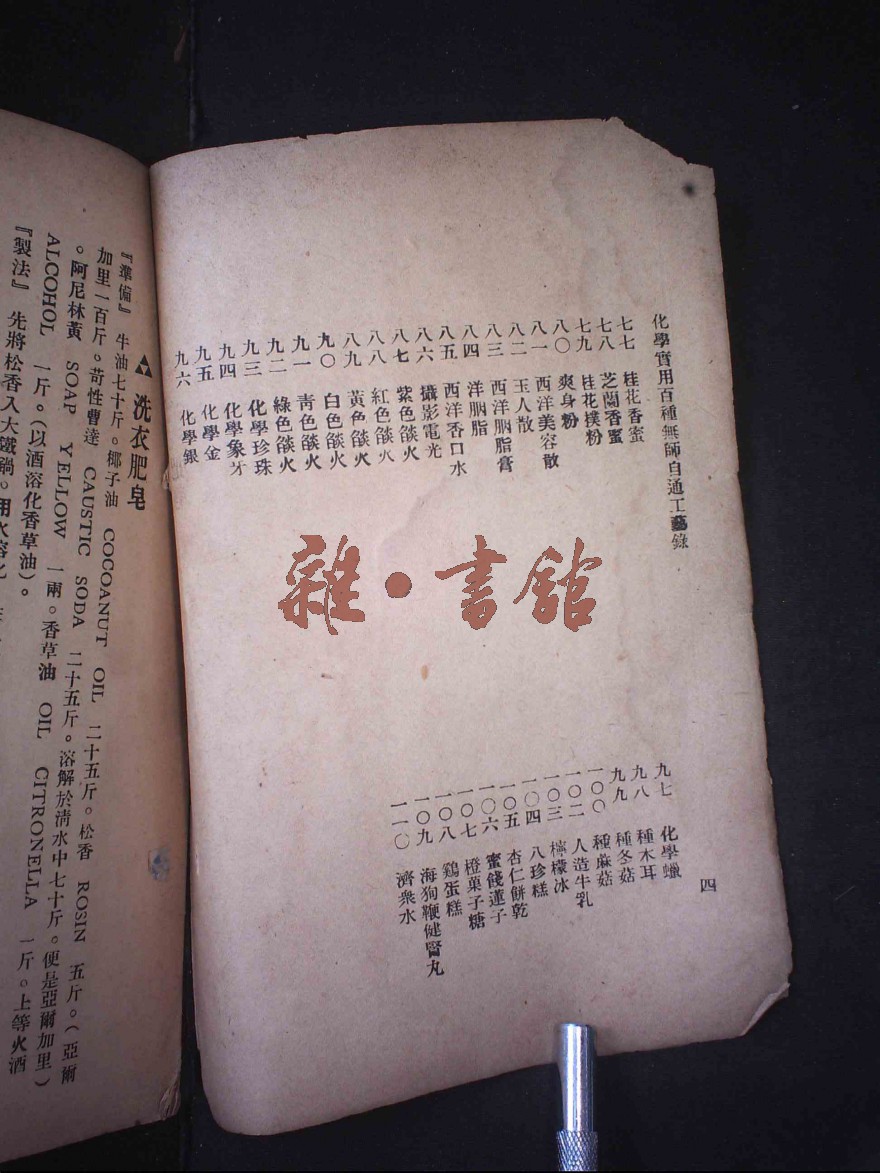 化學實用百種無師自通工藝錄
七七 桂花香蜜
七八 芝蘭香蜜
七九 桂花撲粉
八〇 爽身粉
八一 西洋美容散
八二 玉人散
八三 西洋胭脂膏
八四 洋胭脂
八五 西洋香口水
八六 攝影電光
八七 紫色燄火
八八 紅色燄火
八九 黃色燄火
九〇 白色燄火
九一 靑色燄火
九二 綠色燄火
九三 化學珍珠
九四 化學象牙
九五 化學金
九六 化學銀
九七 化學蠟
九八 種木耳
九九 種冬菇
一〇〇 種麻菇
一〇二 人造牛乳
一〇三 檸檬冰
一〇四 八珍糕
一〇五 杏仁餅乾
一〇六 蜜餞蓮子
一〇七 橙菓子糖
一〇八 鷄蛋糕
一〇九 海狗鞭健腎丸
一一〇 濟衆水
四
雜·書舘
洗衣肥皂
『準備』 牛油七十斤。椰子油 COCOANUT OIL 二十五斤。松香 ROSIN 五斤。(亞爾
加里一百斤。苛性曹達 CAUSTIC SODA 二十五斤。溶解於淸水中七十斤。便是亞爾加里)
。阿尼林黃 SOAP YELLOW 一兩。香草油 OIL CITRONELLA 一斤。上等火酒
ALCOHOL 一斤。(以酒溶化香草油)。
『製法』 先將松香入大鐵鍋。用火溶化